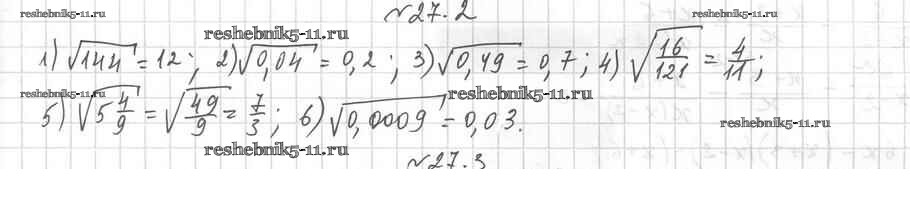 №27.2
reshebnik5-11.ru reshebnik5-11.ru reshebnik5-11.ru
1) √144 = 12; 2) √0,04 = 0,2; 3) √0,49 = 0,7; 4) √16/121 = 4/11;
reshebnik5-11.ru reshebnik5-11.ru
5) √5 4/9 = √49/9 = 7/3; 6) √0,0009 = 0,03.
reshebnik5-11.ru
reshebnik5-11.ru
№27.3